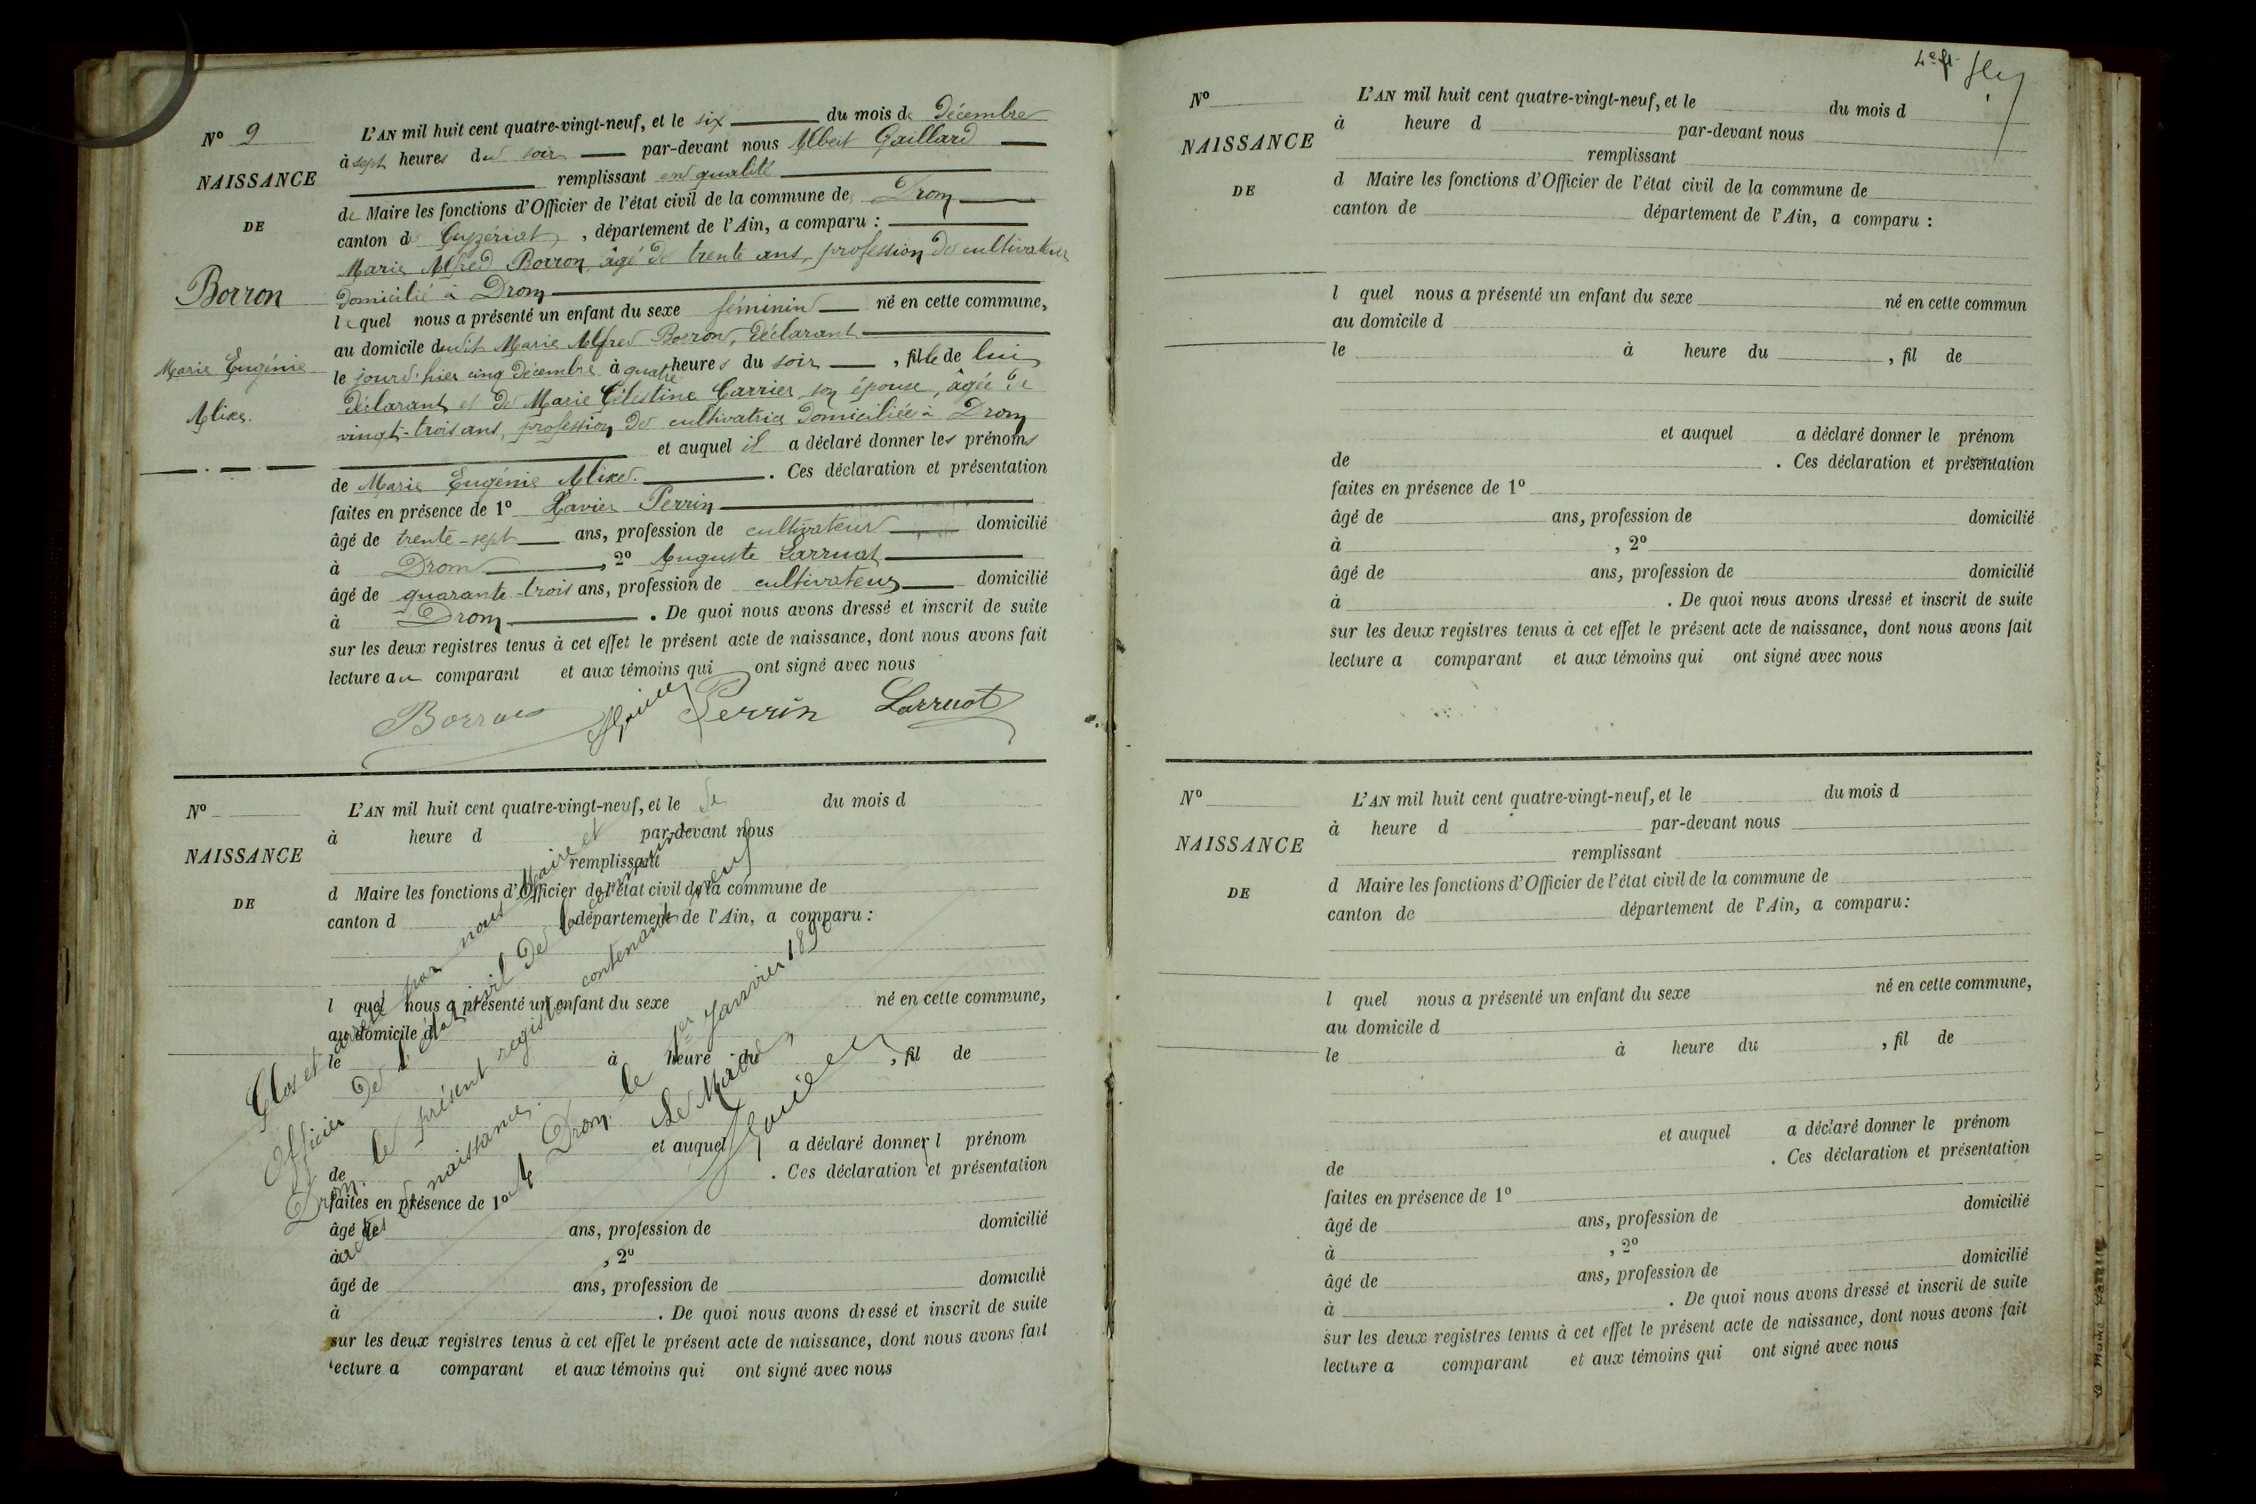 N° 9
NAISSANCE
DE
Borron
Marie Eugénie
Alix.
L'AN mil huit cent quatre-vingt-neuf, et le six du mois de Décembre
à sept heures du soir par-devant nous Albert Gaillard
remplissant en qualité
de Maire les fonctions d'Officier de l'état civil de la commune de Drom
canton de Ceyzériat, département de l'Ain, a comparu :
Marie Alfred Borron âgé de trente ans, profession de cultivateur
domicilié à Drom
lequel nous a présenté un enfant du sexe féminin né en cette commune,
au domicile dudit Marie Alfred Borron, déclarant
le jourd'hier cinq Décembre à quatre heures du soir, fille de lui
déclarant et de Marie Célestine Carrier son épouse, âgée de
vingt-trois ans, profession de cultivatrice domiciliée à Drom
et auquel il a déclaré donner les prénoms
de Marie Eugénie Alix. Ces déclaration et présentation
faites en présence de 1° Xavier Perrin
âgé de trente-sept ans, profession de cultivateur domicilié
à Drom, 2° Auguste Larruat
âgé de quarante-trois ans, profession de cultivateur domicilié
à Drom. De quoi nous avons dressé et inscrit de suite
sur les deux registres tenus à cet effet le présent acte de naissance, dont nous avons fait
lecture au comparant et aux témoins qui ont signé avec nous
Borron Perrin Larruat
N°
NAISSANCE
DE
L'AN mil huit cent quatre-vingt-neuf, et le du mois d
à heure d par-devant nous
remplissant
d Maire les fonctions d'Officier de l'état civil de la commune de
canton d département de l'Ain, a comparu :
l quel nous a présenté un enfant du sexe né en cette commune,
au domicile d
le à heure du , fil de
et auquel a déclaré donner l prénom
de . Ces déclaration et présentation
faites en présence de 1°
âgé de ans, profession de domicilié
à , 2°
âgé de ans, profession de domicilié
à . De quoi nous avons dressé et inscrit de suite
sur les deux registres tenus à cet effet le présent acte de naissance, dont nous avons fait
lecture a comparant et aux témoins qui ont signé avec nous
Clos et arrêté par nous Maire et
Officier de l'état civil de la commune de
Drom. le présent registre contenant neuf
actes de naissance.
Drom le 1er Janvier 1890
Le Maire
N°
NAISSANCE
DE
L'AN mil huit cent quatre-vingt-neuf, et le du mois d
à heure d par-devant nous
remplissant
d Maire les fonctions d'Officier de l'état civil de la commune de
canton de département de l'Ain, a comparu :
l quel nous a présenté un enfant du sexe né en cette commun
au domicile d
le à heure du , fil de
et auquel a déclaré donner le prénom
de . Ces déclaration et présentation
faites en présence de 1°
âgé de ans, profession de domicilié
à , 2°
âgé de ans, profession de domicilié
à . De quoi nous avons dressé et inscrit de suite
sur les deux registres tenus à cet effet le présent acte de naissance, dont nous avons fait
lecture a comparant et aux témoins qui ont signé avec nous
N°
NAISSANCE
DE
L'AN mil huit cent quatre-vingt-neuf, et le du mois d
à heure d par-devant nous
remplissant
d Maire les fonctions d'Officier de l'état civil de la commune de
canton de département de l'Ain, a comparu :
l quel nous a présenté un enfant du sexe né en cette commune,
au domicile d
le à heure du , fil de
et auquel a déclaré donner le prénom
de . Ces déclaration et présentation
faites en présence de 1°
âgé de ans, profession de domicilié
à , 2°
âgé de ans, profession de domicilié
à . De quoi nous avons dressé et inscrit de suite
sur les deux registres tenus à cet effet le présent acte de naissance, dont nous avons fait
lecture a comparant et aux témoins qui ont signé avec nous